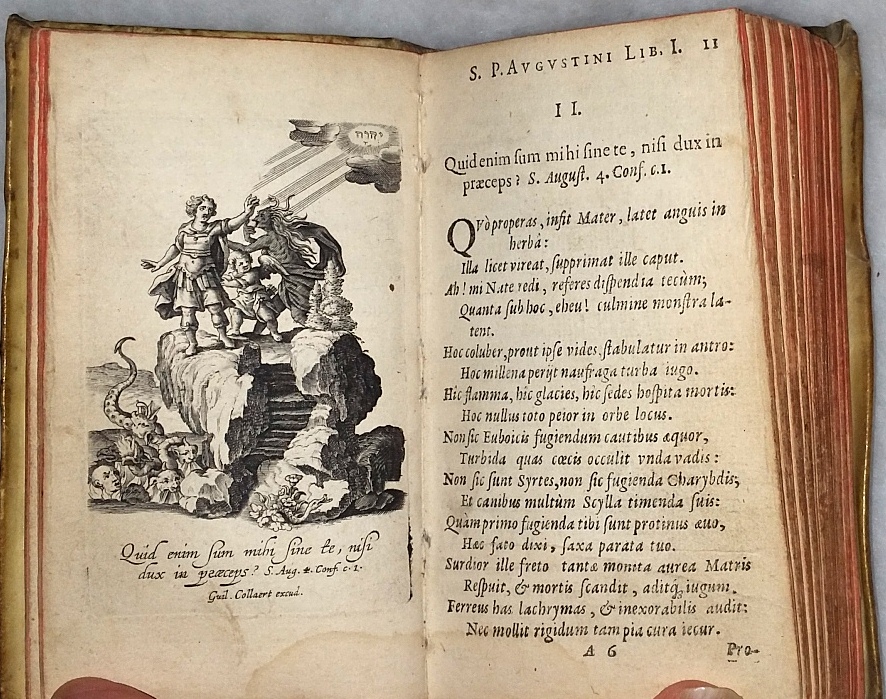 יהוה
Quid enim sum mihi sine te, nisi
dux in præceps? S. Aug. 4. Conf. c. 1.
Guil. Collaert excud.
S. P. AVGVSTINI LIB. I. 11
II.
Quid enim ſum mihi ſine te, niſi dux in
præceps? S. Auguſt. 4. Conf. c. 1.
QVò properas, infit Mater, latet anguis in
herbâ:
Illa licet vireat, ſupprimat ille caput.
Ah! mi Nate redi, referes diſpendia tecùm;
Quanta ſub hoc, eheu! culmine monſtra la-
tent.
Hoc coluber, prout ipſe vides, ſtabulatur in antro:
Hoc millena perijt naufraga turba iugo.
Hîc flamma, hîc glacies, hîc ſedes hoſpita mortis:
Hoc nullus toto peior in orbe locus.
Non ſic Euboicis fugiendum cautibus æquor,
Turbida quas cœcis occulit vnda vadis:
Non ſic ſunt Syrtes, non ſic fugienda Charybdis;
Et canibus multùm Scylla timenda ſuis:
Quam primo fugienda tibi ſunt protinus æuo,
Hæc fato dixi, ſaxa parata tuo.
Surdior ille freto tantæ monita aurea Matris
Reſpuit, & mortis ſcandit, aditq; iugum.
Ferreus has lachrymas, & inexorabilis audit:
Nec mollit rigidum tam pia cura iecur.
A 6 Pro-